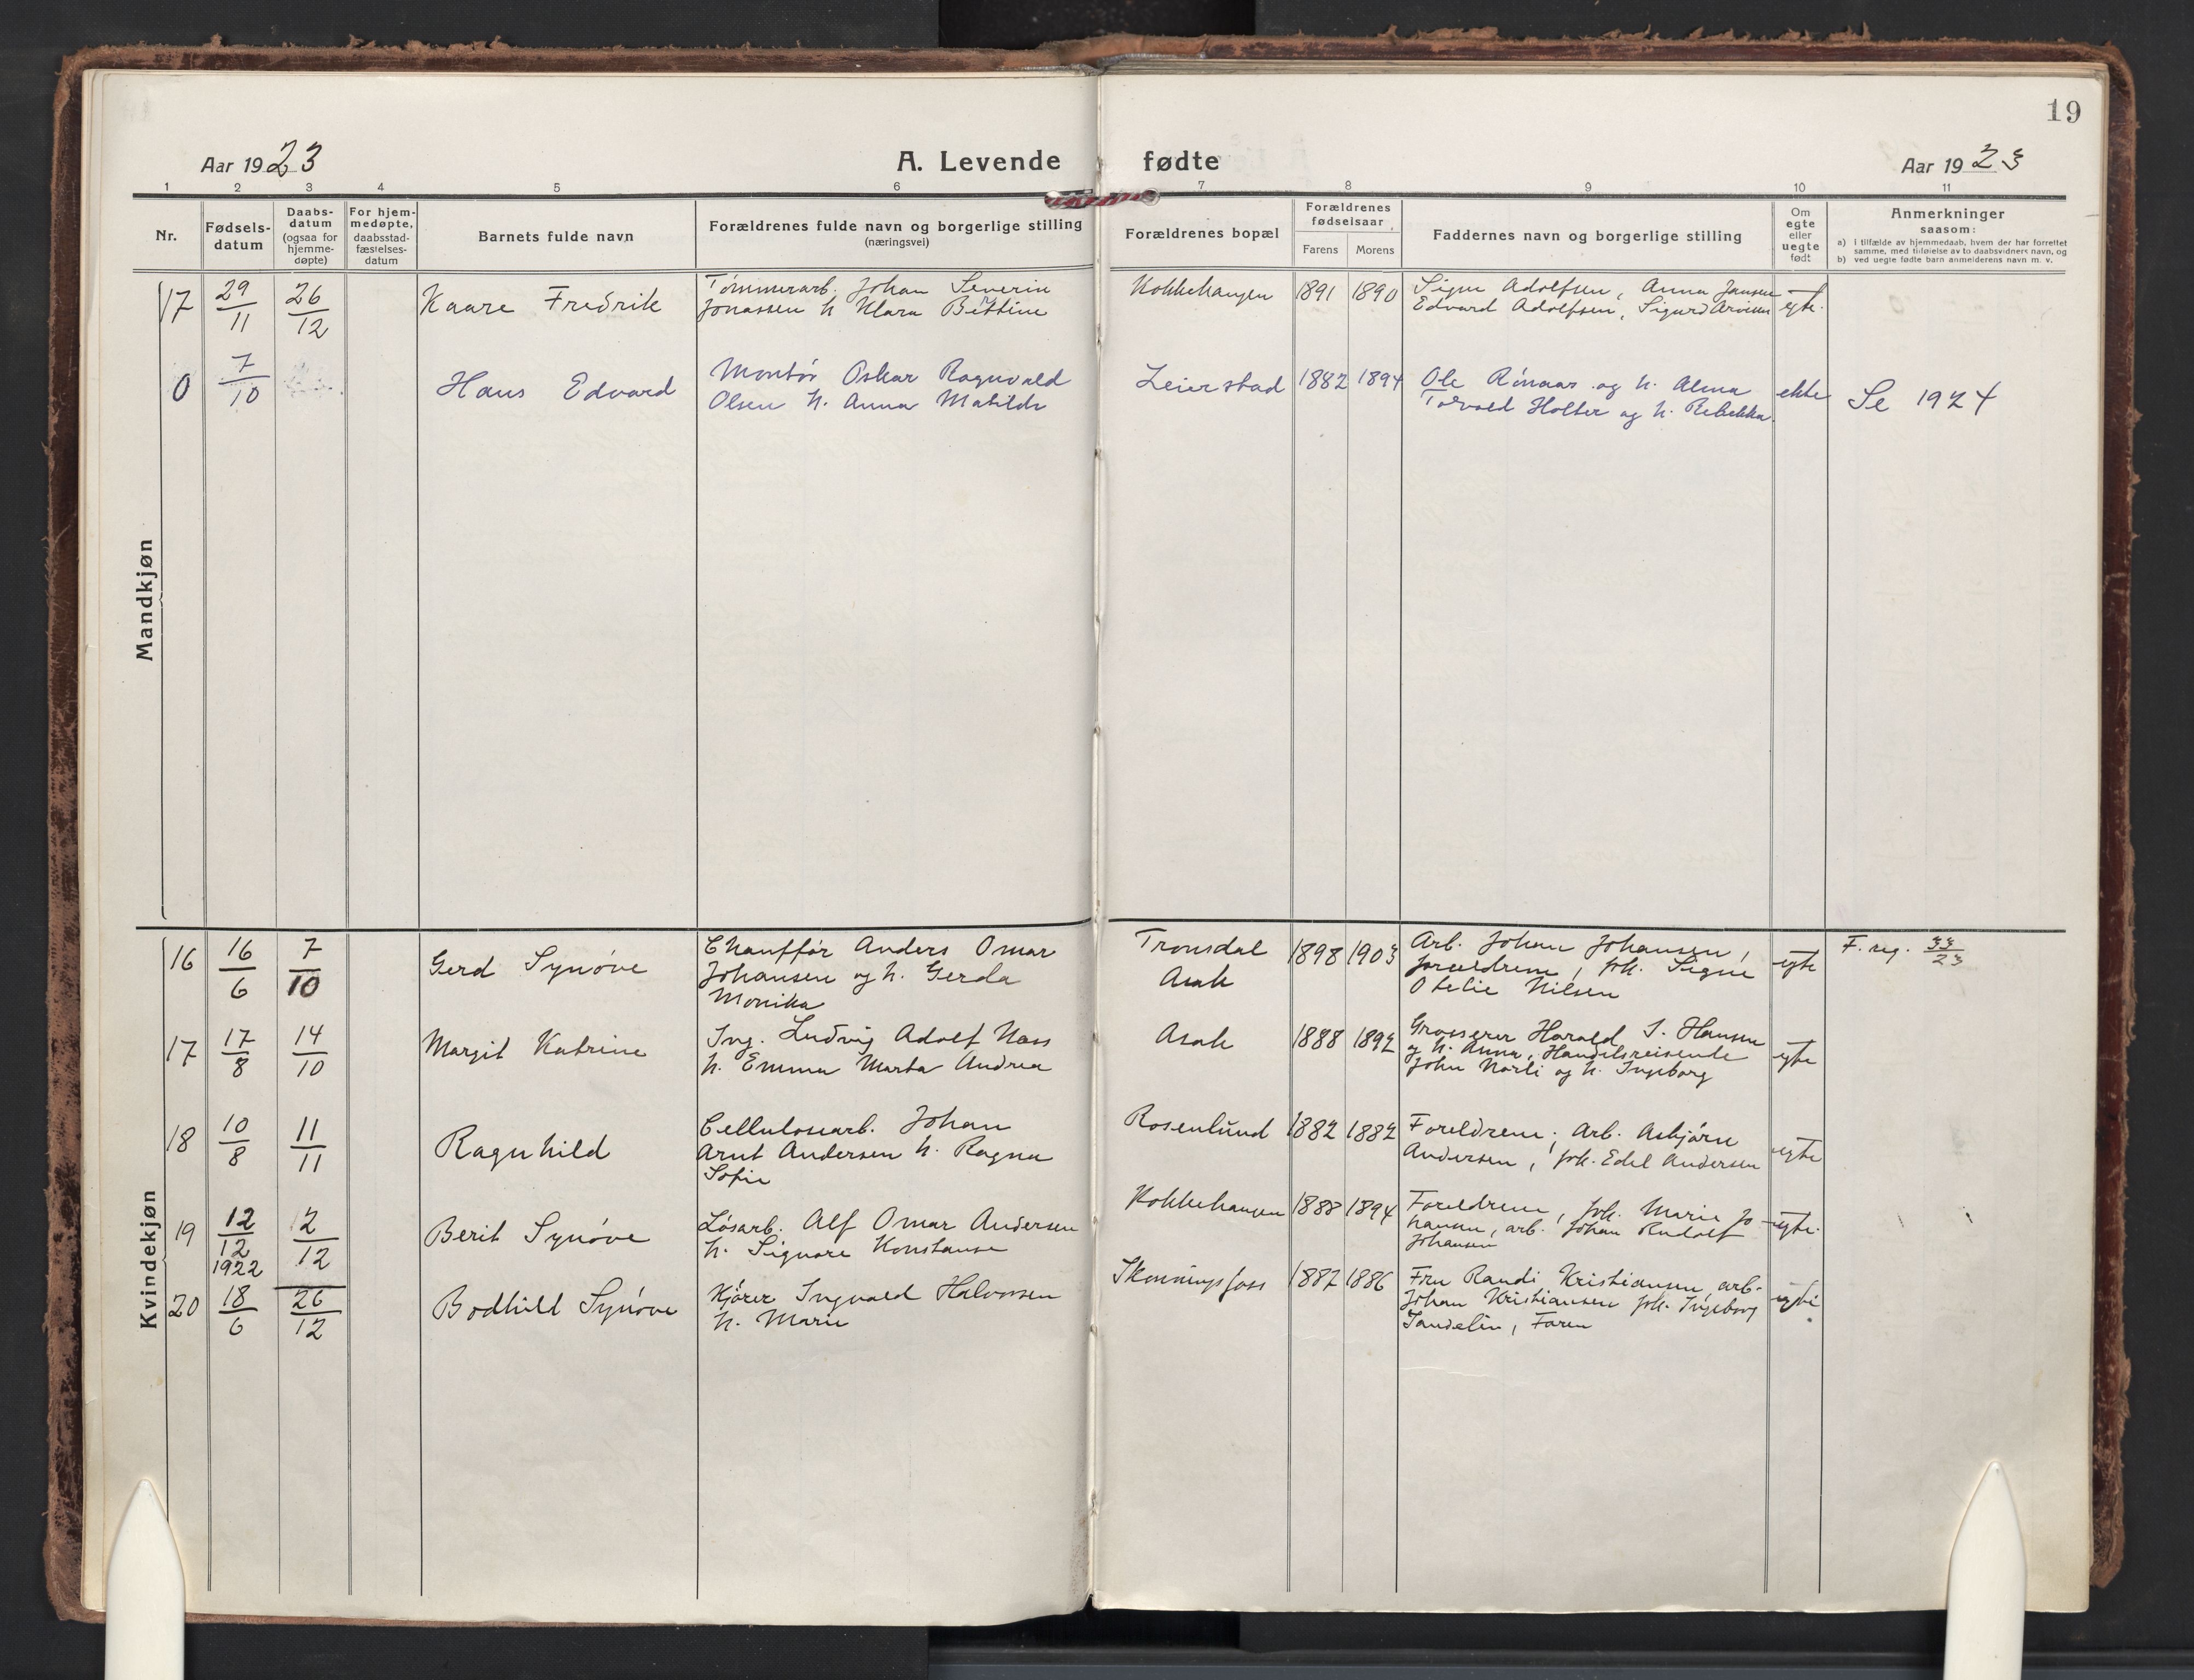 19
Aar 1923
A. Levende fødte
Aar 1923
1 2 3 4 5 6 7 8 9 10 11
Nr.
Fødsels-
datum
Daabs-
datum
(ogsaa for
hjemme-
døpte)
For hjem-
medøpte,
daabsstad-
fæstelses-
datum
Barnets fulde navn
Forældrenes fulde navn og borgerlige stilling
(næringsvei)
Forældrenes bopæl
Forældrenes
fødselsaar
Farens Morens
Faddernes navn og borgerlige stilling
Om
egte
eller
uegte
født
Anmerkninger
saasom:
a) i tilfælde av hjemmedaab, hvem der har forrettet
samme, med tilføielse av to daabsvidners navn, og
b) ved uegte fødte barn anmelderens navn m. v.
Mandkjøn
17
29/11
26/12
Kaare Fredrik
Tømmerarb. Johan Severin
Jonassen h. Klara Bettine
Kokkehaugen
1891 1890
Signe Adolfsen, Anna Jansen
Edvard Adolfsen, Sigurd
egte.
0
7/10
Hans Edvard
Montør Oskar Ragnvald
Olsen h. Anna Matilde
Leierstad
1882 1894
Ole og h. Alma
Torvald Holter og h. Rebekka.
ekte
Se 1924
Kvindekjøn
16
16/6
7/10
Gerd Synøve
Chauffør Anders Omar
Johansen og h. Gerda
Monika
Tronsdal
Asak
1898 1903
Arb. Johan Johansen,
forældrene, frk. Signe
Otelie Nilsen
egte
F. reg. 33/23
17
17/8
14/10
Margit Katrine
Ing. Ludvig Adolf Næss
h. Emma Marta Andrea
Asak
1888 1892
Grosserer Harald S. Hansen
og h. Anna, Handelsreisende
John Nørli og h. Ingeborg
egte
18
10/8
11/11
Ragnhild
Cellulosearb. Johan
Arnt Andersen h. Ragna
Sofie
Rosenlund
1882 1882
Foreldrene, Arb. Asbjørn
Andersen, frk. Edel Andersen
egte
19
12/12
1922
2/12
Berit Synøve
Løsarb. Alf Omar Andersen
h. Signore Konstanse
Kokkehaugen
1888 1894
Foreldrene, frk. Marie Jo
hansen, arb. Johan Rudolf
Johansen
egte.
20
18/6
26/12
Bodhild Synøve
Kjører Ingvald Halvorsen
h. Marie
Skonningsfoss
1887 1886
Fru Randi Kristiansen, arb.
Johan Kristiansen frk. Ingeborg
Sandelin, Faren
egte